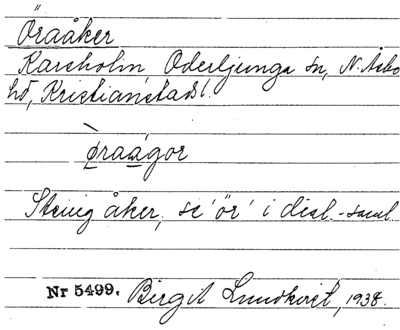 Öraåker
Karsholm, Oderljunga sn, N. Åsbo
hd, Kristianstads l.
ø̀raágor
Stenig åker, se 'ör' i dial.-saml.
Nr 5499. Birgit Lundkvist, 1938.